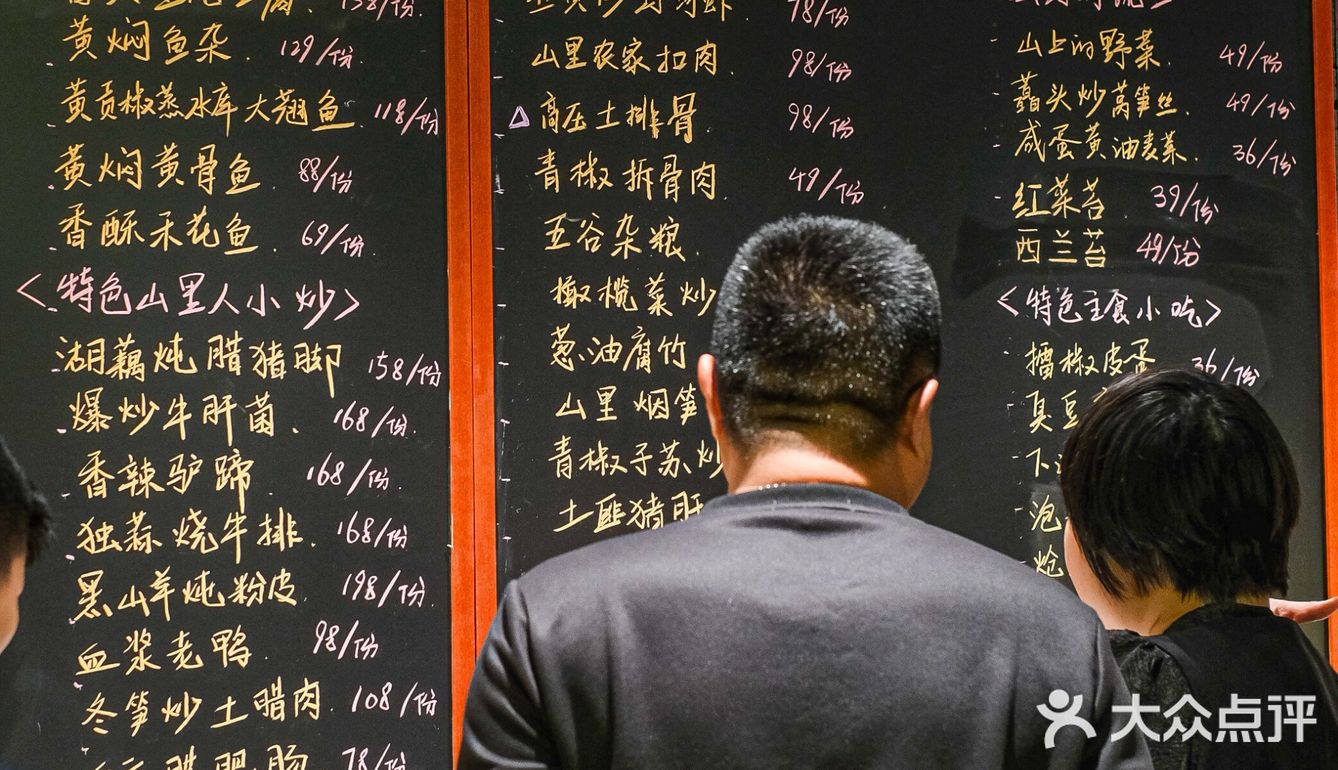 138/份.
黄焖鱼杂. 129/份.
黄贡椒蒸水库大翘鱼. 118/份
黄焖黄骨鱼 88/份
香酥禾花鱼 69/份.
<特色山里人小炒>
湖藕炖腊猪脚 158/份
爆炒牛肝菌. 168/份.
香辣驴蹄 168/份.
独蒜烧牛排. 168/份
黑山羊炖粉皮 198/份.
血浆老鸭. 98/份
冬笋炒土腊肉 108/份
78/份.
78/份
山里农家扣肉. 98/份
△高压土排骨. 98/份
青椒拆骨肉 49/份
五谷杂粮.
橄榄菜炒
葱油腐竹
山里烟笋
青椒子苏炒
土匪猪肝
山上的野菜. 49/份
藠头炒莴笋丝. 49/份
咸蛋黄油麦菜. 36/份
红菜苔. 39/份
西兰苔 49/份
<特色主食小吃>
擂椒皮蛋 36/份
臭豆
泡
大众点评